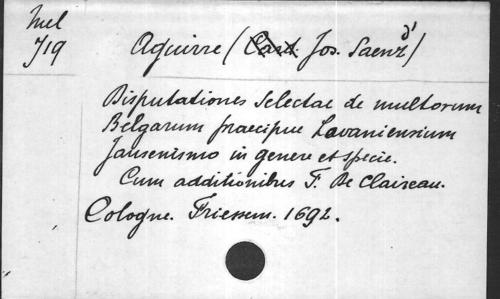 Mel
719
Aguirre (Card. Jos. Saenz d')
Disputationes Selectae de multorum
Belgarum praecipue Lovaniensium
Jansenismo in genere et specie.
Cum additionibus F. De Claireau.
Cologne. Friessem. 1692.